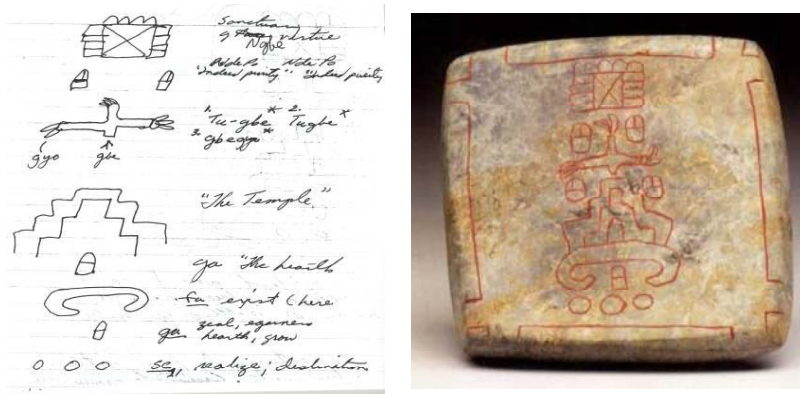 Sanctuary
of virtue
Ngbe
Ndde Po Nde Po
"Indeed purity" "Indeed purity
1. Tu-gbe * 2. Tugbe x
3. gbegyo *
gyo gbe
"The Temple."
ga "The hearth
fa exist (here
ga zeal, eagerness
hearth, grow
se, realize; destination